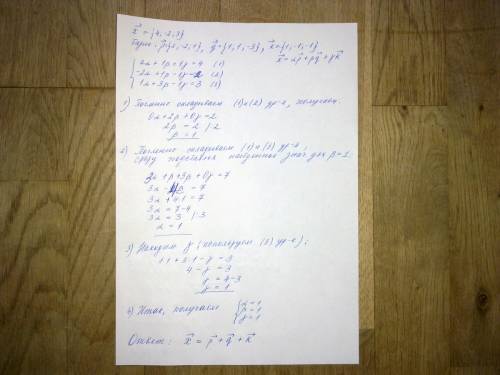 x⃗ = {4, -2, 3}
p⃗ {2, -2, 1}, q⃗ = {1, 1, -3}, k⃗ = {1, -1, -1}
x⃗ = αp⃗ + βq⃗ + γk⃗
2α + 1β + 1γ = 4 (1)
-2α + 1β - 1γ = -2 (2)
1α + 3β - 1γ = 3 (3)
1) Почленно складываем (1) и (2) ур-я, получаем:
0α + 2β + 0γ = 2
2β = 2 /:2
β = 1
2) Почленно складываем (1) и (3) ур-я,
сразу подставляя найденное знач. для β = 1:
3α + β + 3β + 0γ = 7
3α + 4β = 7
3α + 4·1 = 7
3α = 7-4
3α = 3 /:3
α = 1
3) Находим γ (используем (3) ур-е):
1·1 + 3·1 - γ = 3
4 - γ = 3
γ = 4-3
γ = 1
4) Итак, получаем { α = 1
β = 1
γ = 1
Ответ: x⃗ = p⃗ + q⃗ + k⃗